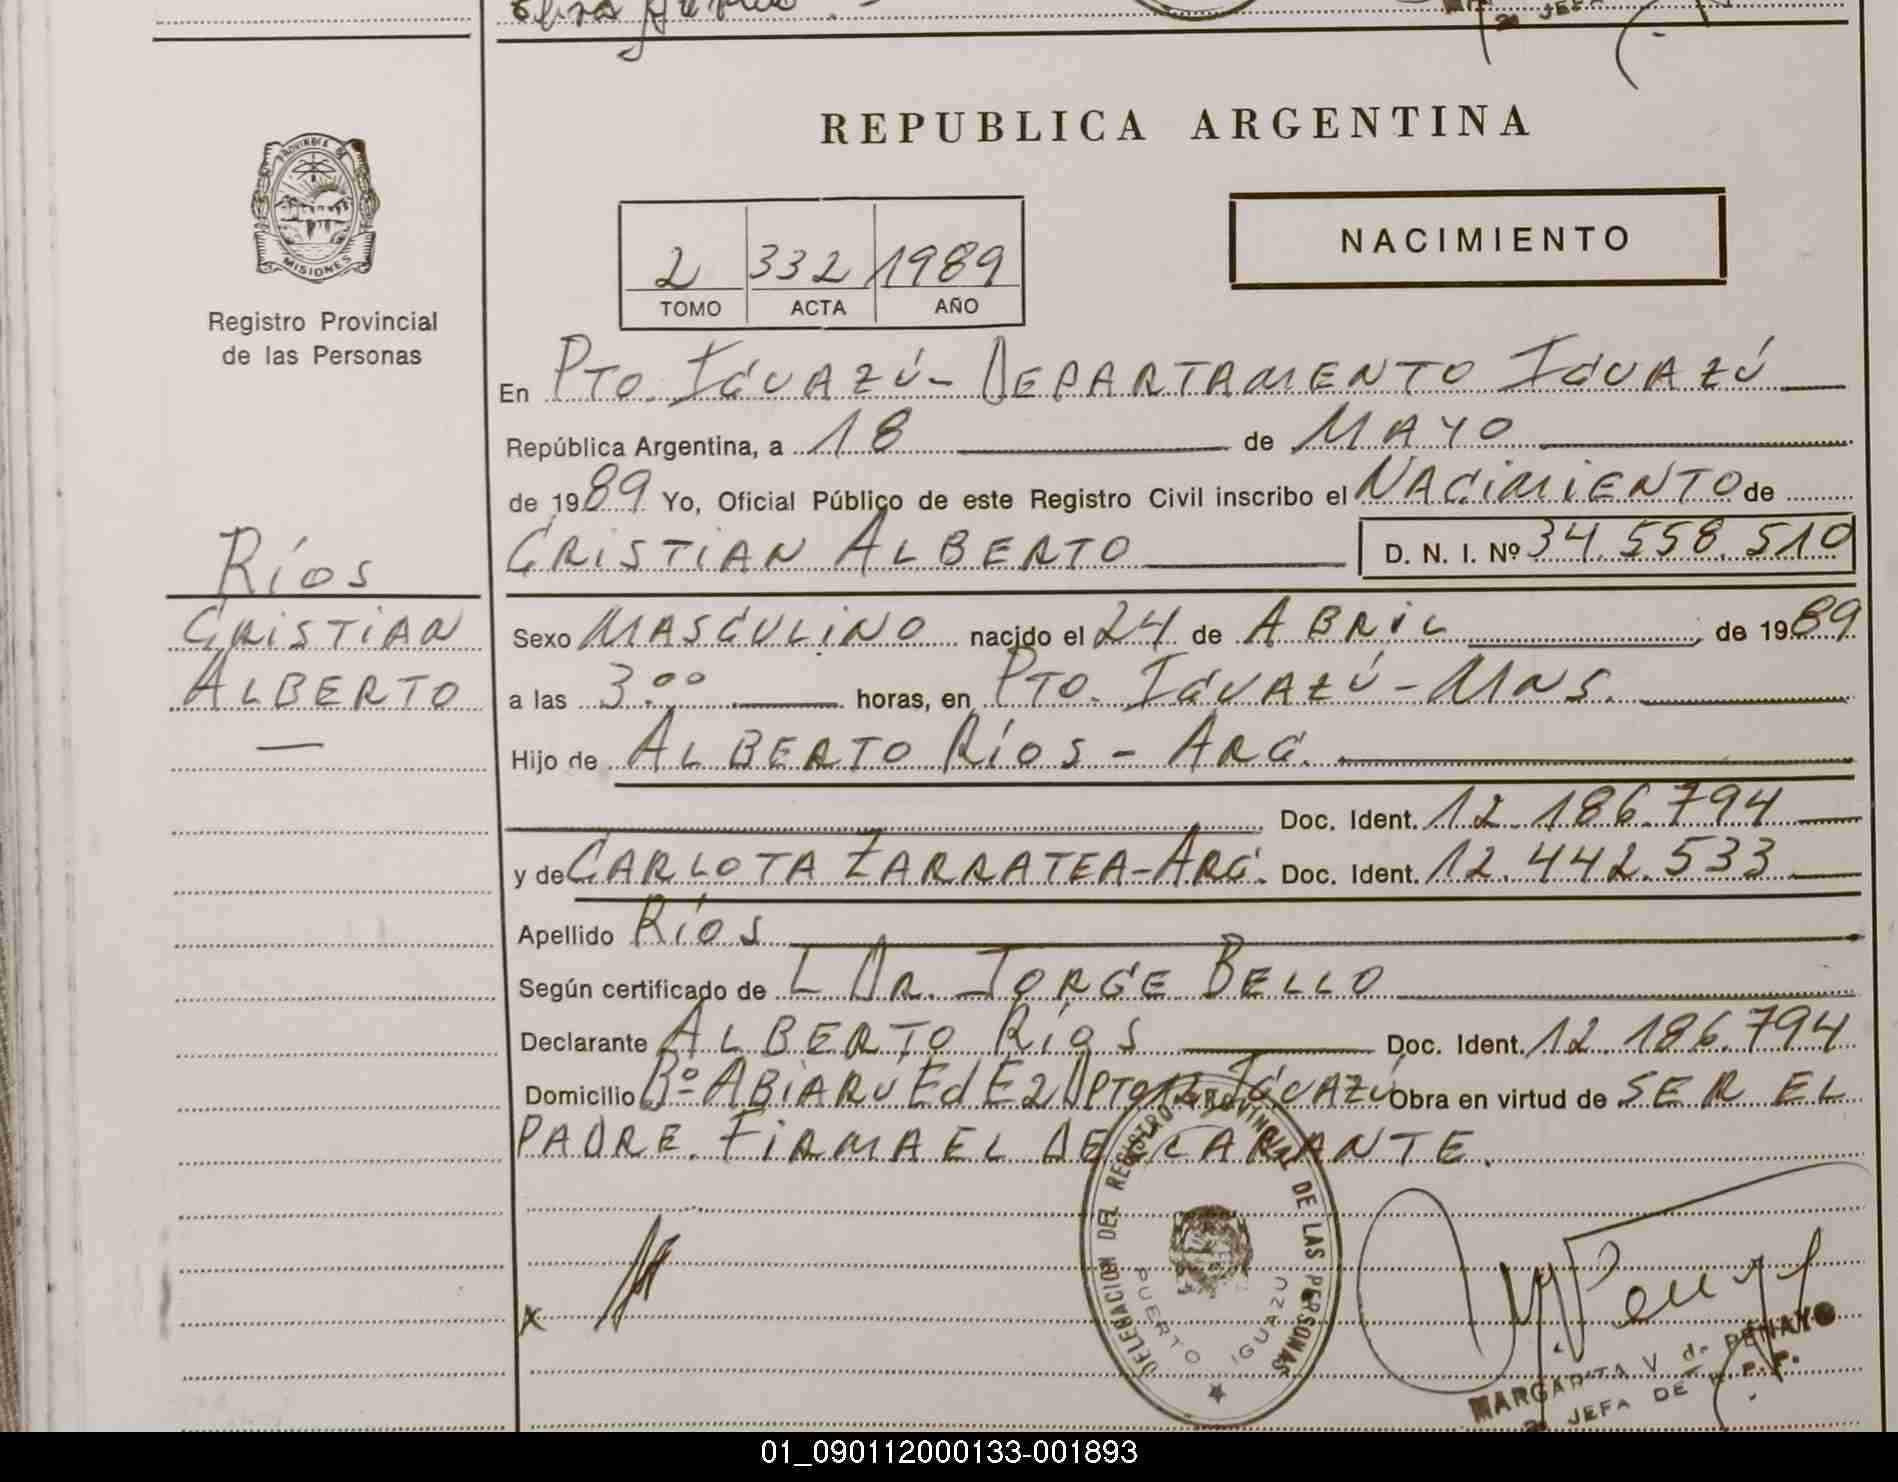 REPUBLICA ARGENTINA
PROVINCIA DE
MISIONES
Registro Provincial
de las Personas
NACIMIENTO
2 332 1989
TOMO ACTA AÑO
En PTO. IGUAZÚ - DEPARTAMENTO IGUAZÚ
República Argentina, a 18 de MAYO
de 1989 Yo, Oficial Público de este Registro Civil inscribo el NACIMIENTO de
CRISTIAN ALBERTO D. N. I. Nº 34.558.510
RÍOS
CRISTIAN
ALBERTO
Sexo MASCULINO nacido el 24 de ABRIL de 1989
a las 3.00 horas, en PTO. IGUAZÚ - MNS.
Hijo de ALBERTO RÍOS - ARG.
Doc. Ident. 12.186.794
y de CARLOTA ZARRATEA - ARG. Doc. Ident. 12.442.533
Apellido RÍOS
Según certificado de L DR. JORGE BELLO
Declarante ALBERTO RÍOS Doc. Ident. 12.186.794
Domicilio Bº ABIARÚ Ed E2 DPTO IGUAZÚ Obra en virtud de SER EL
PADRE. FIRMA EL DECLARANTE.
DELEGACION DEL REGISTRO PROVINCIAL DE LAS PERSONAS
PUERTO IGUAZU
x
MARGARITA V. de PENAYO
2a JEFA DE R.P.P.
01_090112000133-001893